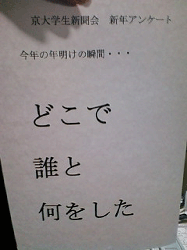 京大学生新聞会　新年アンケート
今年の年明けの瞬間・・・
どこで
誰と
何をした